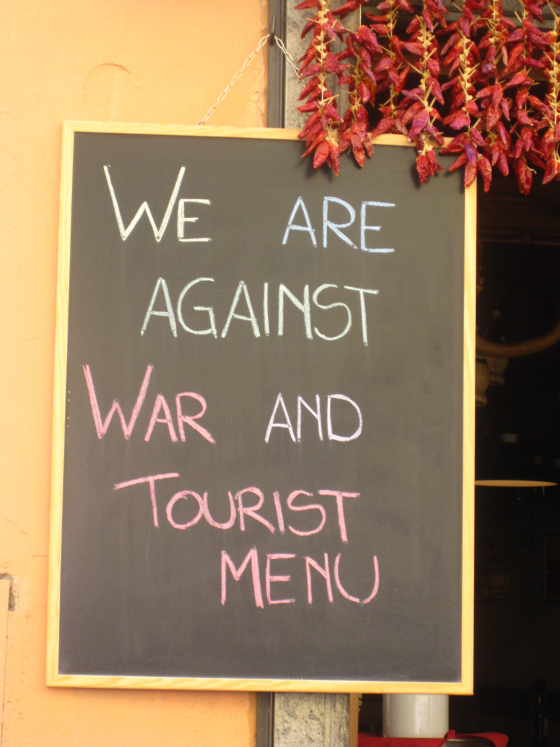 WE ARE
AGAINST
WAR AND
TOURIST
MENU